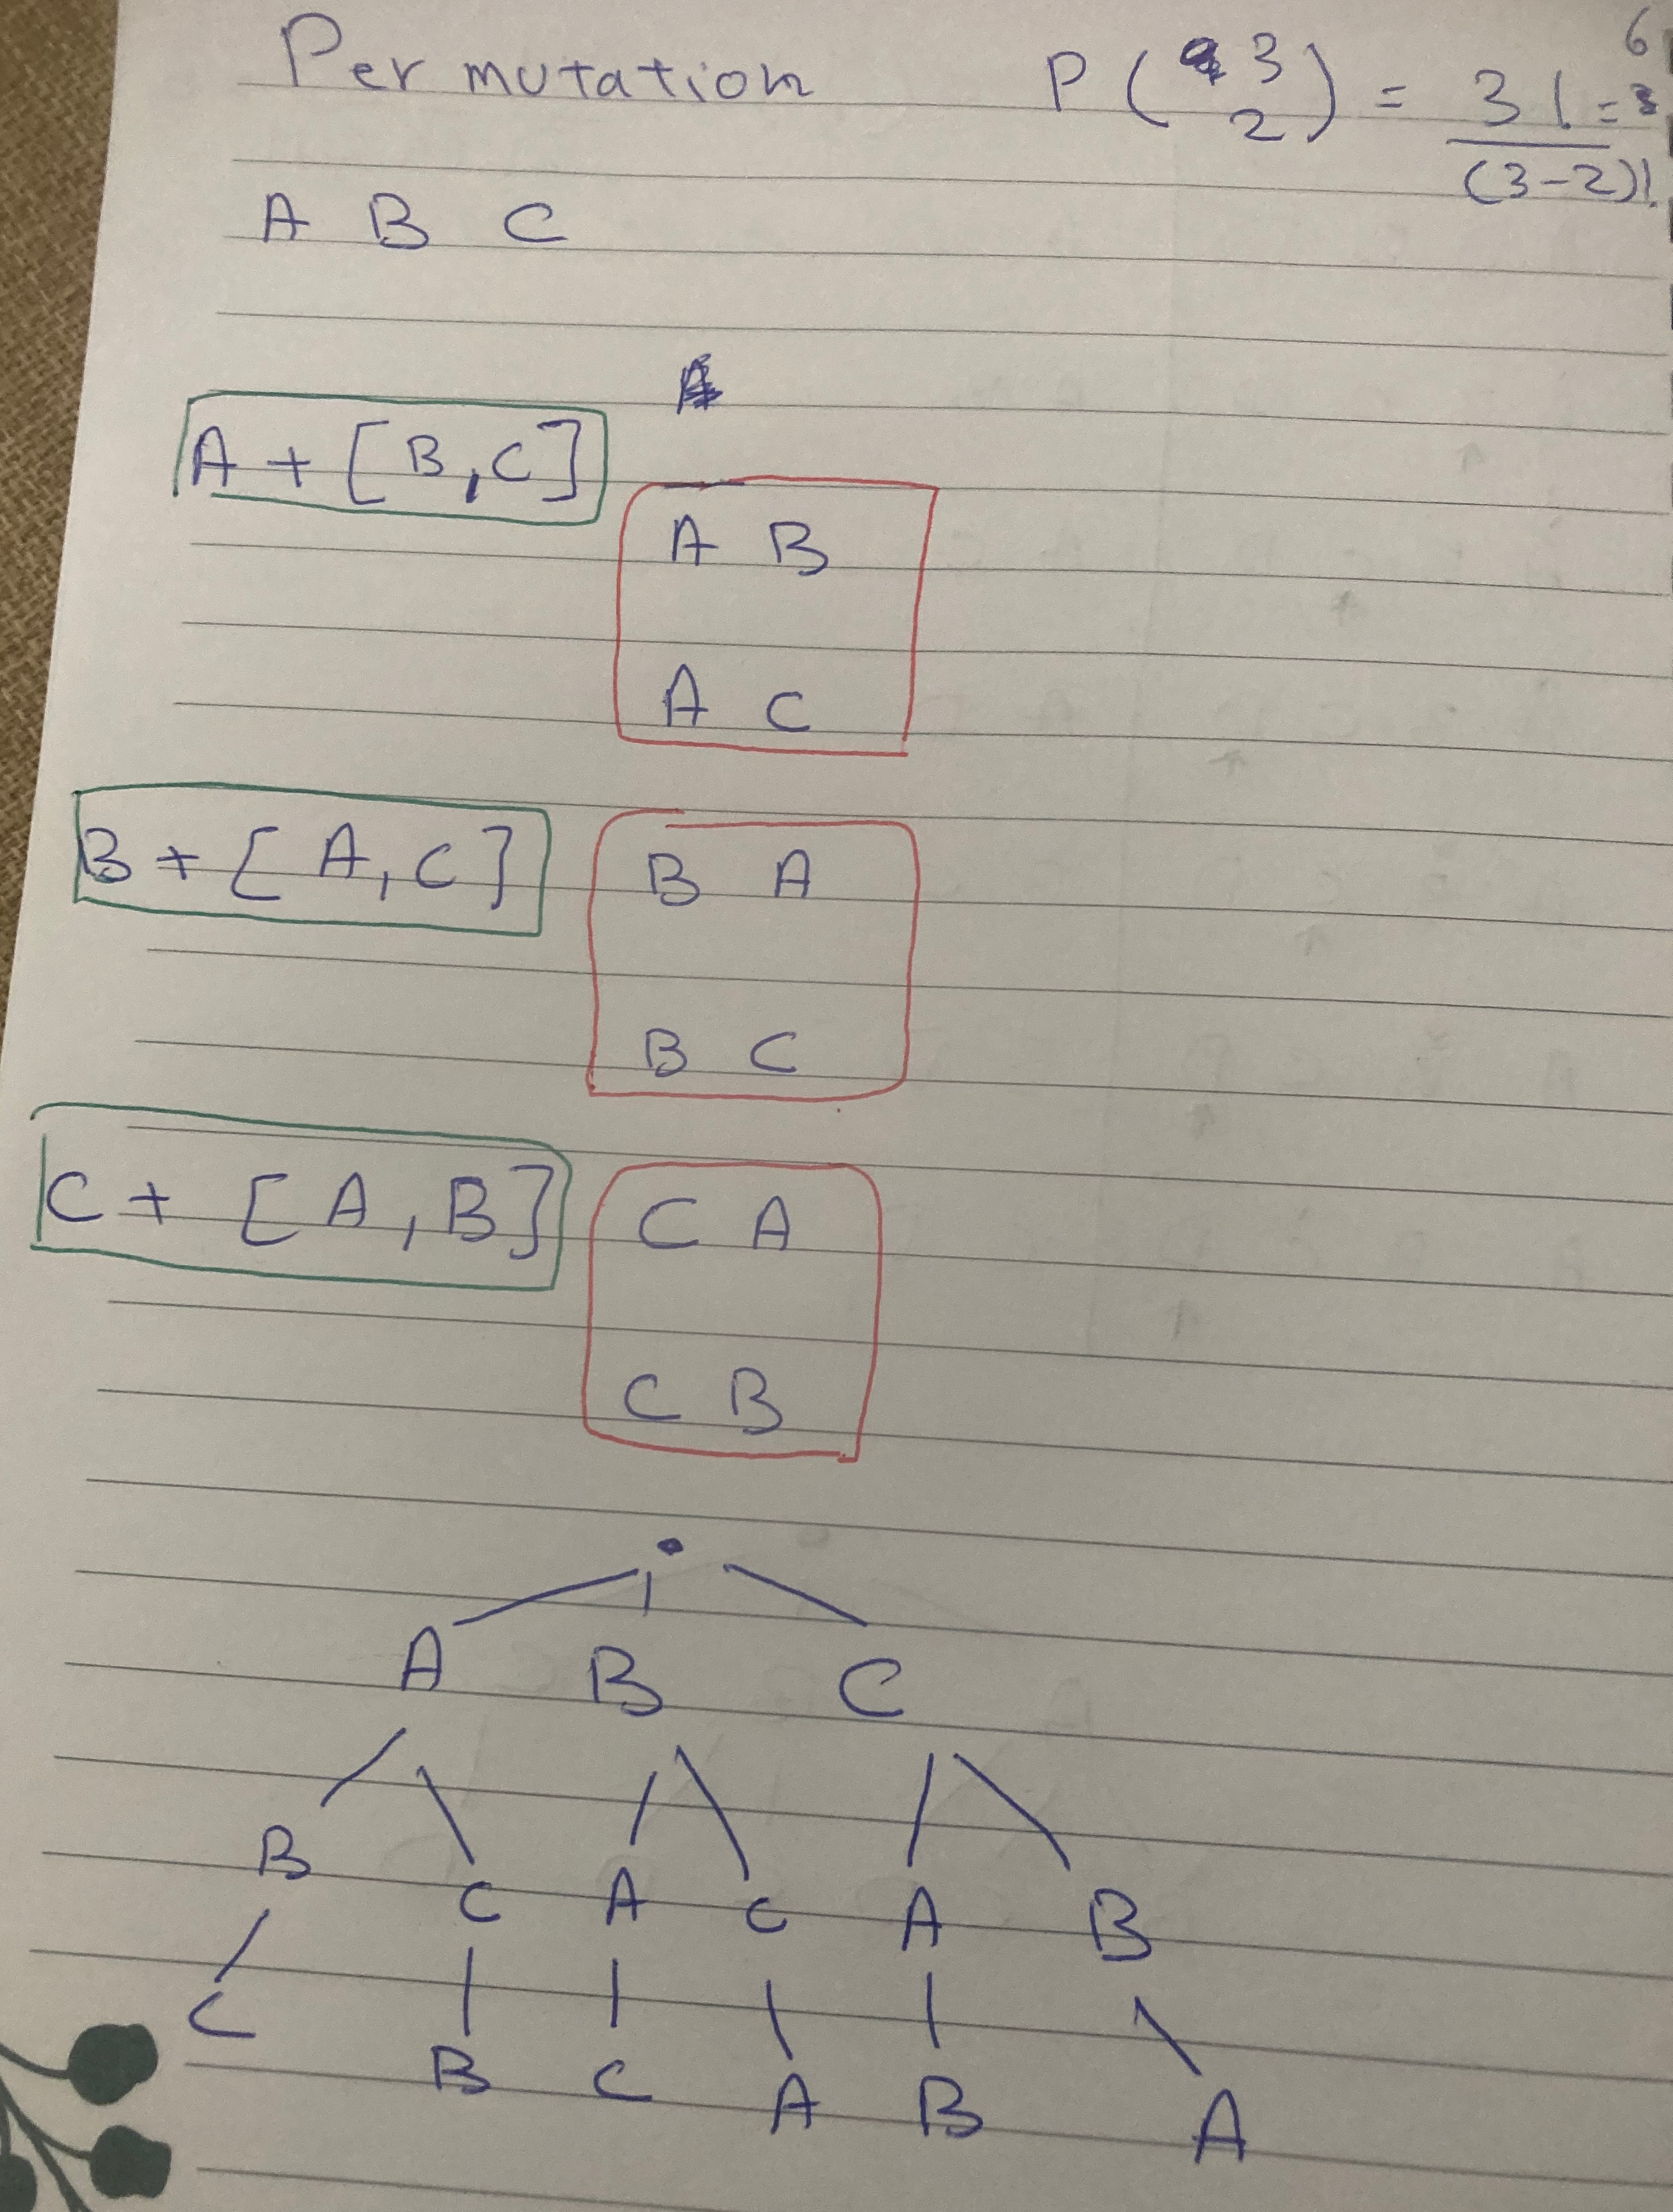 Permutation P ( 3 2 ) = 3! / (3-2)! = 6
A B C
A + [ B, C ]
A B
A C
B + [ A, C ] B A
B C
C + [ A, B ] C A
C B
A B C
B C A C A B
C B C A B A